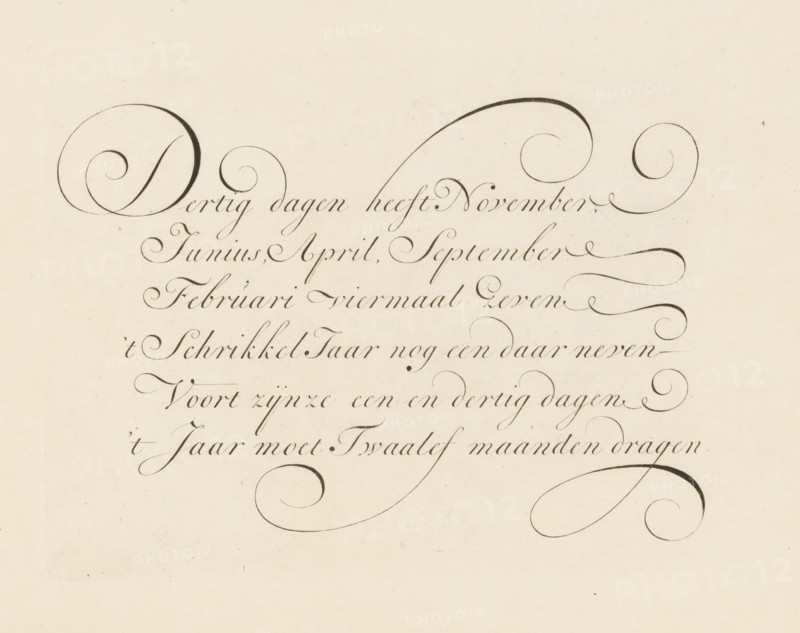 Dertig dagen heeft November,
Junius, April, September
Februari viermaal zeven
't Schrikkel Jaar nog een daar neven
Voort zijnze een en dertig dagen
't Jaar moet Twaalef maanden dragen